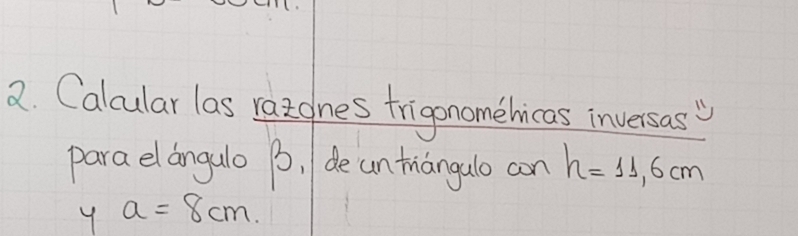 2. Calcular las razones trigonométricas inversas
para el ángulo β, de un triángulo con h= 11,6 cm
y a = 8 cm.